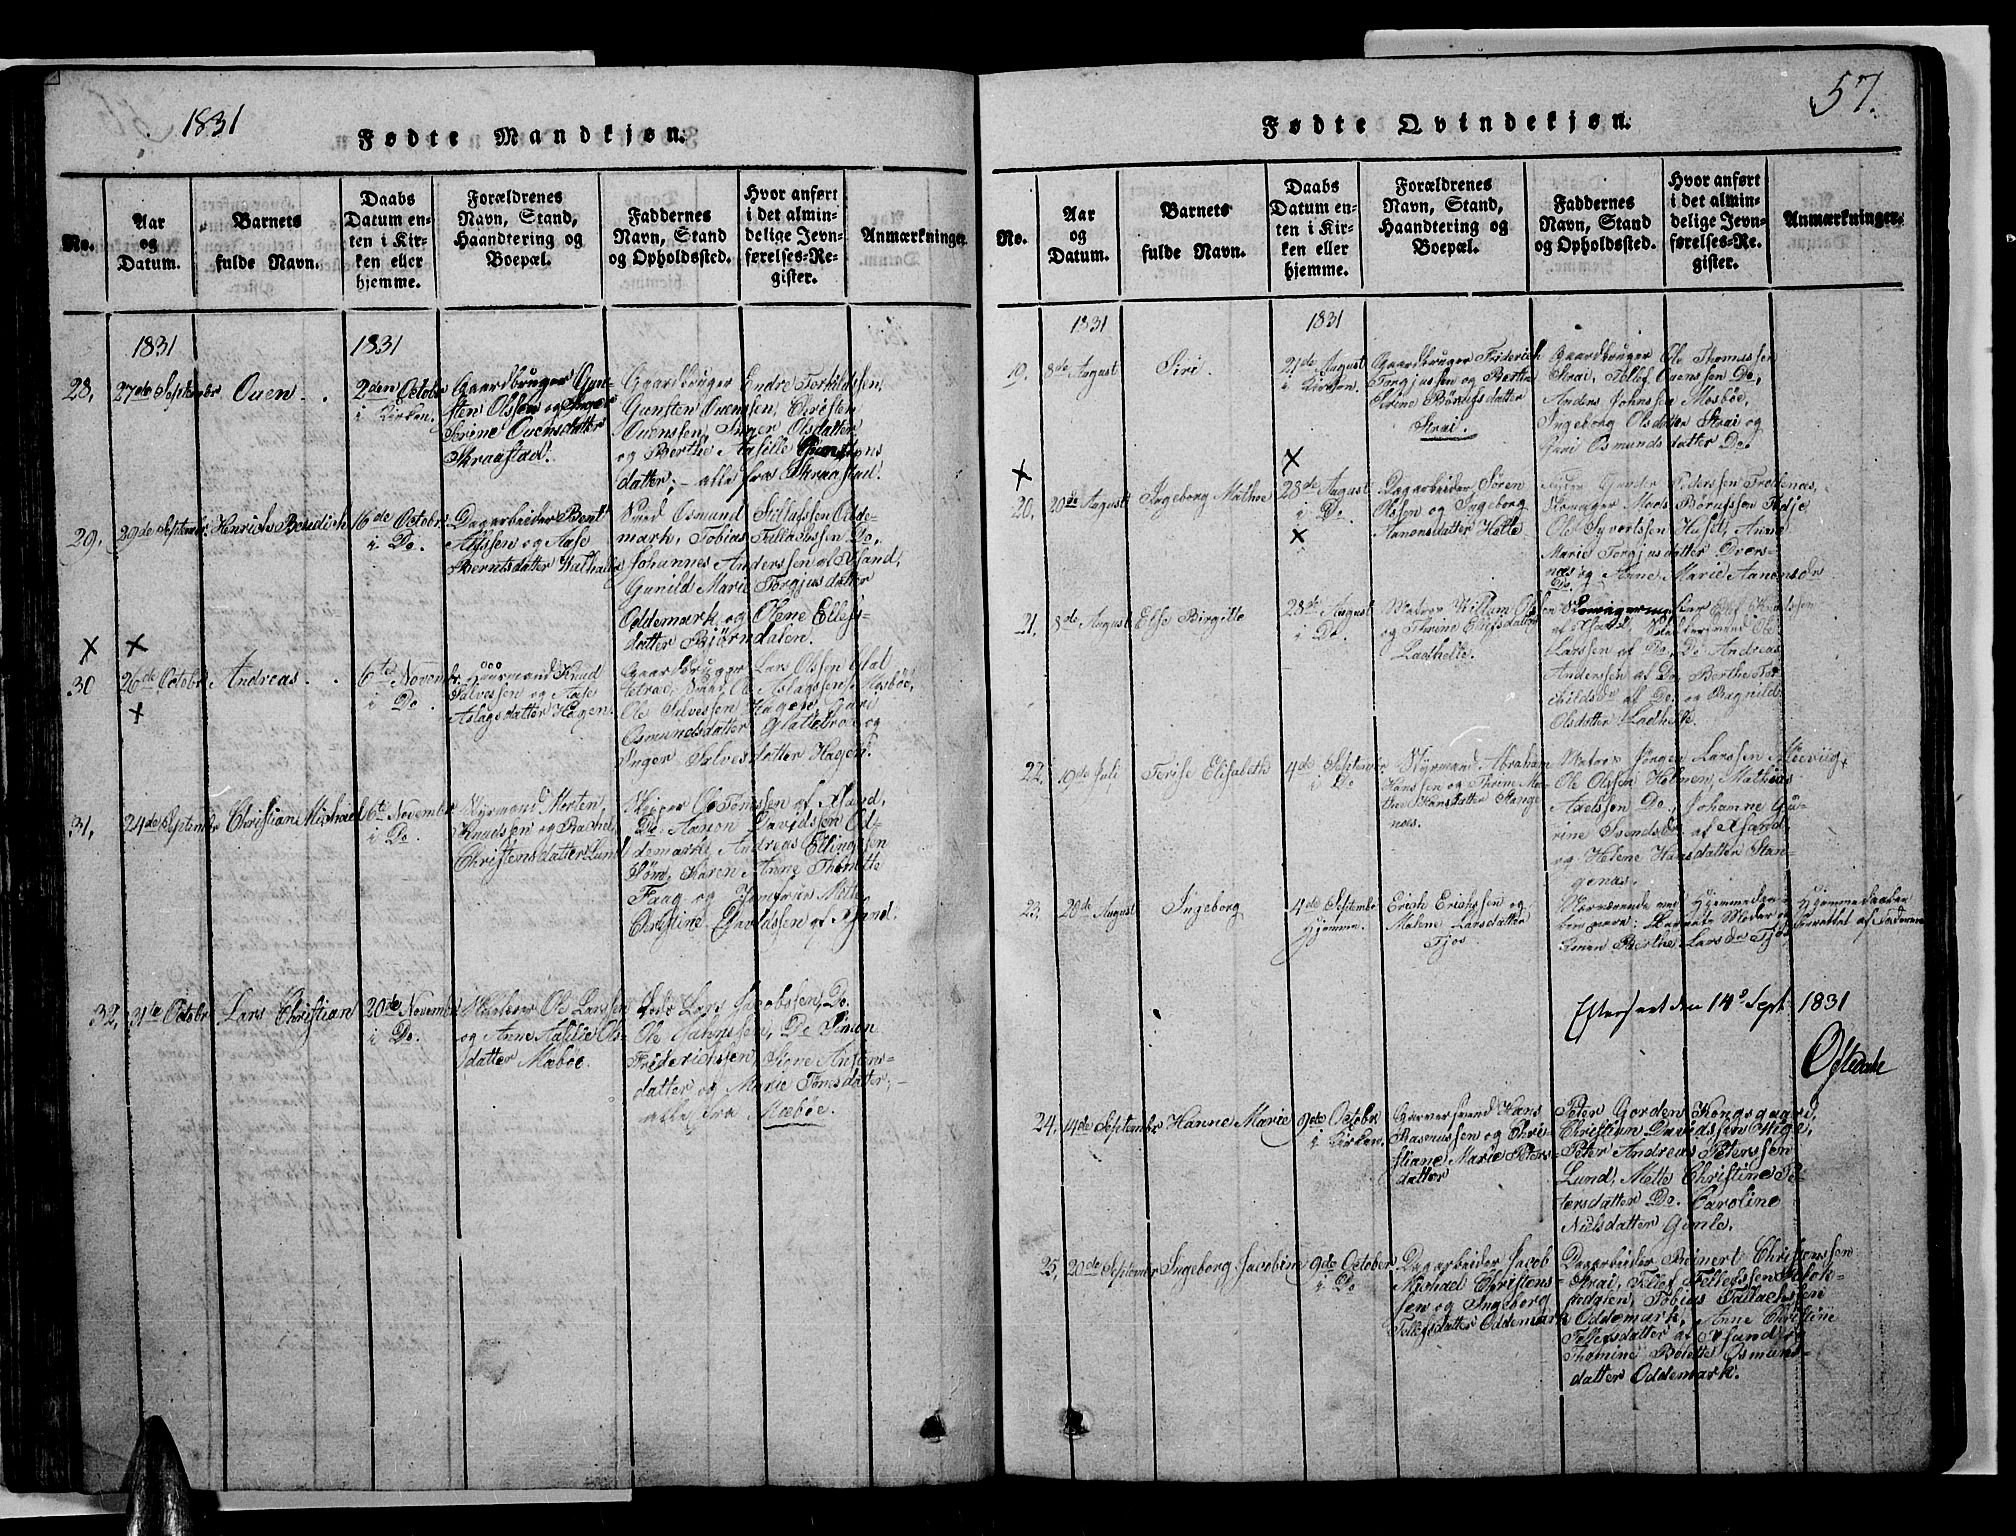 1831
Fødte Mandkjøn.
No.
Aar
og
Datum.
Barnets
fulde Navn.
Daabs
Datum en-
ten i Kir-
ken eller
hjemme.
Forældrenes
Navn, Stand,
Haandtering og
Boepæl.
Faddernes
Navn, Stand
og Opholdssted.
Hvor anført
i det almin-
delige Jevn-
førelses-Re-
gister.
Anmærkninger.
1831
1831
28,
27de Septembr
Ouen
2den Octobr
i Kirken,
Gaardbruger Gun-
sten Olssen og Inger
Serine Ouensdatter
Skraastad.
Gaardbruger Endre Torkildssen
Gunsten Ouenssen, Christen
Ouenssen, Inger Olsdatter
og Berthe Aasille Gunstens
datter, - alle fra Skraastad.
29,
29de Septembr.
Henrich Bendich
16de Octobr.
i Do.
Dagarbeider Bent
Alfssen og Aase
Berntsdatter Kalhalle
Svend Osmund Tellefssen Odde-
mark, Tobias Talladssen Do,
Johannes Anderssen af Xsand,
Gunild Marie Torgjusdatter
Oddemark og Olene Ellefs-
datter Bjørndalen.
30
26de Octobr
Andreas
6te Novembr.
i Do.
Knud
Salvessen og Aase
Aslagsdatter Hagen
Gaardbruger Lars Olssen Glat
tetræ, Svend Ole Aslagssen Mosbøe,
Ole Salvessen Hagen, Guri
Osmundsdatter Glattetræ og
Inger Salvesdatter Hagen.
31,
24de Septembr
Christian Michael
6te Novembr
i Do.
Styrmand Morten
Knudssen og Rachel
Christensdatter Lund
Skipper Ole Tønnssen af Xsand,
Do. Aanon Davidssen Od-
demark, Andreas Ellingssen
Tømd, Karen Anne Thonette
Faag og Jomfrue Mette
Christine Eyvoldssen af Xsand.
32,
31te Octobr
Lars Christian
20de Novembr
i Do.
Ole Larssen
og Anne Aasille Ols-
datter Mæbøe.
Lods Lars Jacobssen, Do.
Ole Hanssen, Do Simon
Friderichssen, Signe Andens-
datter og Marie Tønesdatter,
alle fra Mæbøe.
57.
Fødte Qvindekjøn.
No.
Aar
og
Datum.
Barnets
fulde Navn.
Daabs
Datum en-
ten i Kir-
ken eller
hjemme.
Forældrenes
Navn, Stand,
Haandtering og
Boepæl.
Faddernes
Navn, Stand
og Opholdssted.
Hvor anført
i det almin-
delige Jevn-
førelses-Re-
gister.
Anmærkninger.
1831
1831
19.
8de August
Siri.
21de August
i Kirken.
Gaardbruger Friderich
Torgjussen og Berthe
Serine Børufsdatter
Strai.
Gaardbruger Ole Thomassen
Strai, Tellef Ouenssen Do,
Anders Johnssen Mosbøe,
Ingeborg Olsdatter Strai og
Guri Osmundsdatter Do.
20,
20de August
Ingeborg Mathea
28de August
i Do.
Dagarbeider Søren
Olssen og Ingeborg
Aanensdatter Holte
Gunder Pederssen Frodenæs,
Skomager Mads Børufssen Ødje
Ole Syvertssen Huset, Anne
Marie Torgjusdatter Dvers-
næs og Anne Marie Aanensdr
Do.
21,
8de August
Else Birgitte
28de August
i Do.
Matros Willum Olssen
og Thrine Ellefsdatter
Ladhelle.
Skomager
af Xsand,
Larssen af Do, Do Andreas
Anderssen af Do, Berthe Tor
childsdr af Do og Ragnild
Olsdatter Ladhelle.
22,
19de Juli
Terise Elisabeth
4de Septembr
i Do
Styrmand Abraham
Hanssen og Thrine Ma-
thea Hansdatter Stange
næs.
Matros Jørgen Larssen
Ole Olssen Holmen, Mathias
Axelssen Do, Johanne Gu-
rine Svendsdr af Xsand
og Helene Hansdatter Stan-
genæs.
23,
28de August
Ingeborg
4de Septembr
Hjemme.
Erich Erichssen og
Malene Larsdatter
Tjos.
Nærværende ved Hjemmedaa-
ben vare: Barnets Moder og
Konen Berthe Larsdr Tjos
Hjemmedaaben
forrettet af Faderen
Efterseet den 14de Sept. 1831
Oftedahl
24,
14de Septembr
Hanne Marie
9de Octobr
i Kirken.
Garversvend Hans
Rasmussen og Chri-
stiane Marie Peters-
datter
Peter Gorden Kongsgaard,
Christian Davidssen Stige,
Peter Andreas Peterssen
Lund, Mette Christine Pe-
tersdatter Do. Caroline
Nielsdatter Gimle.
25,
20de Septembr
Ingeborg Jacobine
9de October
i Do
Dagarbeider Jacob
Michael Christens-
sen og Ingeborg
Tellefsdatter Oddemark
Dagarbeider Reinert Christenssen
Strai, Tellef Tellefssen Blok-
Tobias Tallachssen
Oddemark, Anne Christine
Tellefsdatter af Xsand og
Thomine Bolette Osmunds-
datter Oddemark.